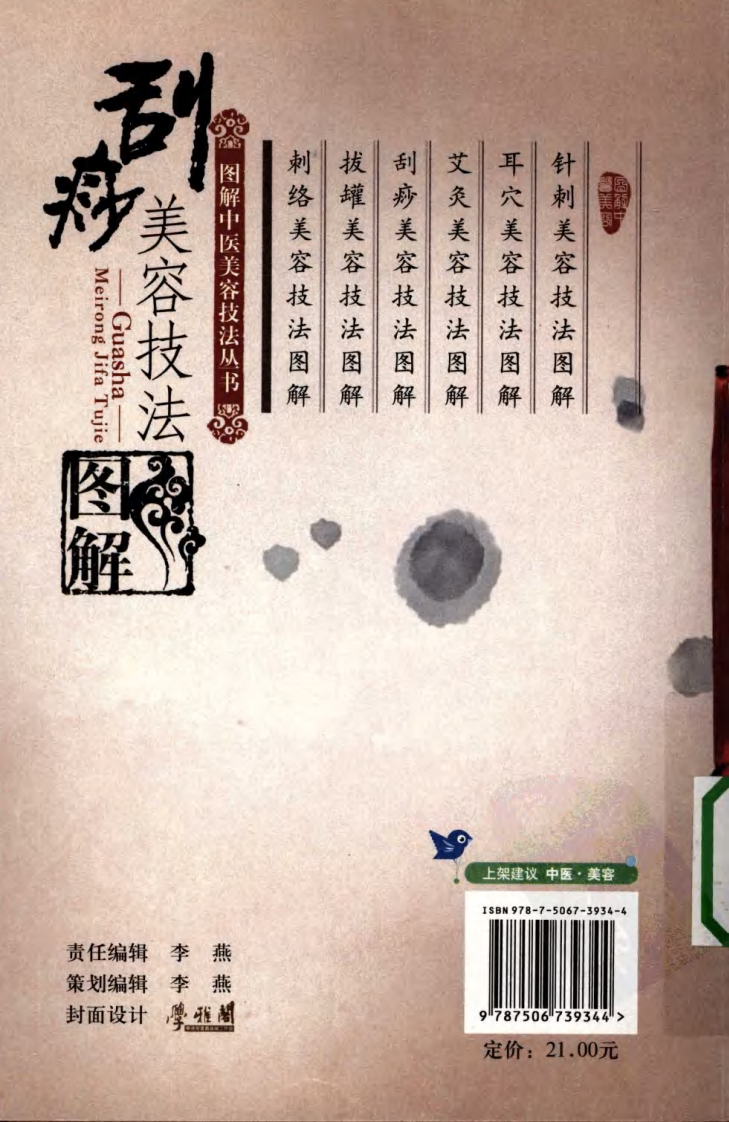 刮痧
美容技法
Guasha
Meirong Jifa Tujie
图解
图解中医美容技法丛书
图解中
醫美容
针刺美容技法图解
耳穴美容技法图解
艾灸美容技法图解
刮痧美容技法图解
拔罐美容技法图解
刺络美容技法图解
上架建议 中医·美容
ISBN 978-7-5067-3934-4
9 787506 739344 >
定价：21.00元
责任编辑 李 燕
策划编辑 李 燕
封面设计 學雅閣